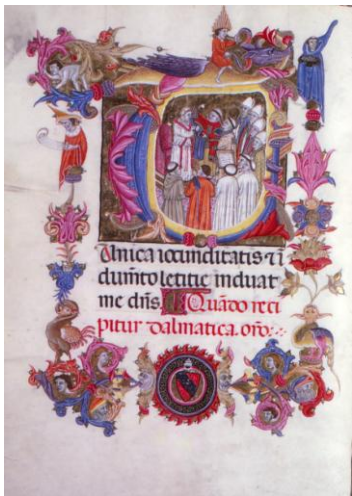 Vnica iocunditatis ⁊ i
dumto letitie induat
me dns. Quando reci
pitur dalmatica. oro: